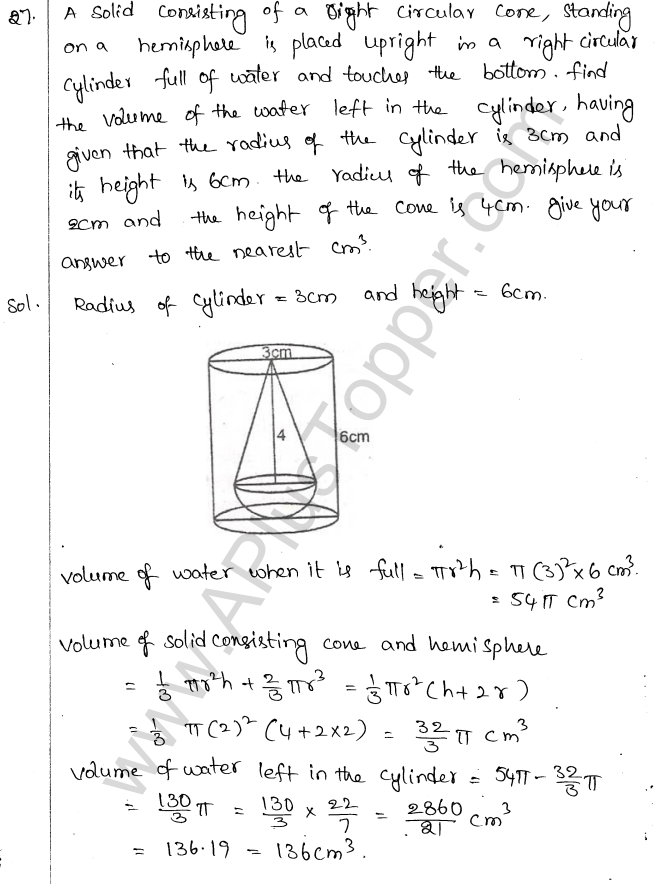 27. A solid consisting of a right circular cone, standing
on a hemisphere is placed upright in a right circular
cylinder full of water and touches the bottom. find
the volume of the water left in the cylinder, having
given that the radius of the cylinder is 3cm and
its height is 6cm. the radius of the hemisphere is
2cm and the height of the cone is 4cm. give your
answer to the nearest cm³.
Sol. Radius of cylinder = 3cm and height = 6cm.
3cm
4
6cm
volume of water when it is full = πr²h = π(3)²×6 cm³.
= 54π cm³
volume of solid consisting cone and hemisphere
= 1/3 πr²h + 2/3 πr³ = 1/3 πr²(h+2r)
= 1/3 π(2)² (4+2×2) = 32/3 π cm³
volume of water left in the cylinder = 54π - 32/3 π
= 130/3 π = 130/3 × 22/7 = 2860/21 cm³
= 136.19 = 136cm³.
www.APlusTopper.com